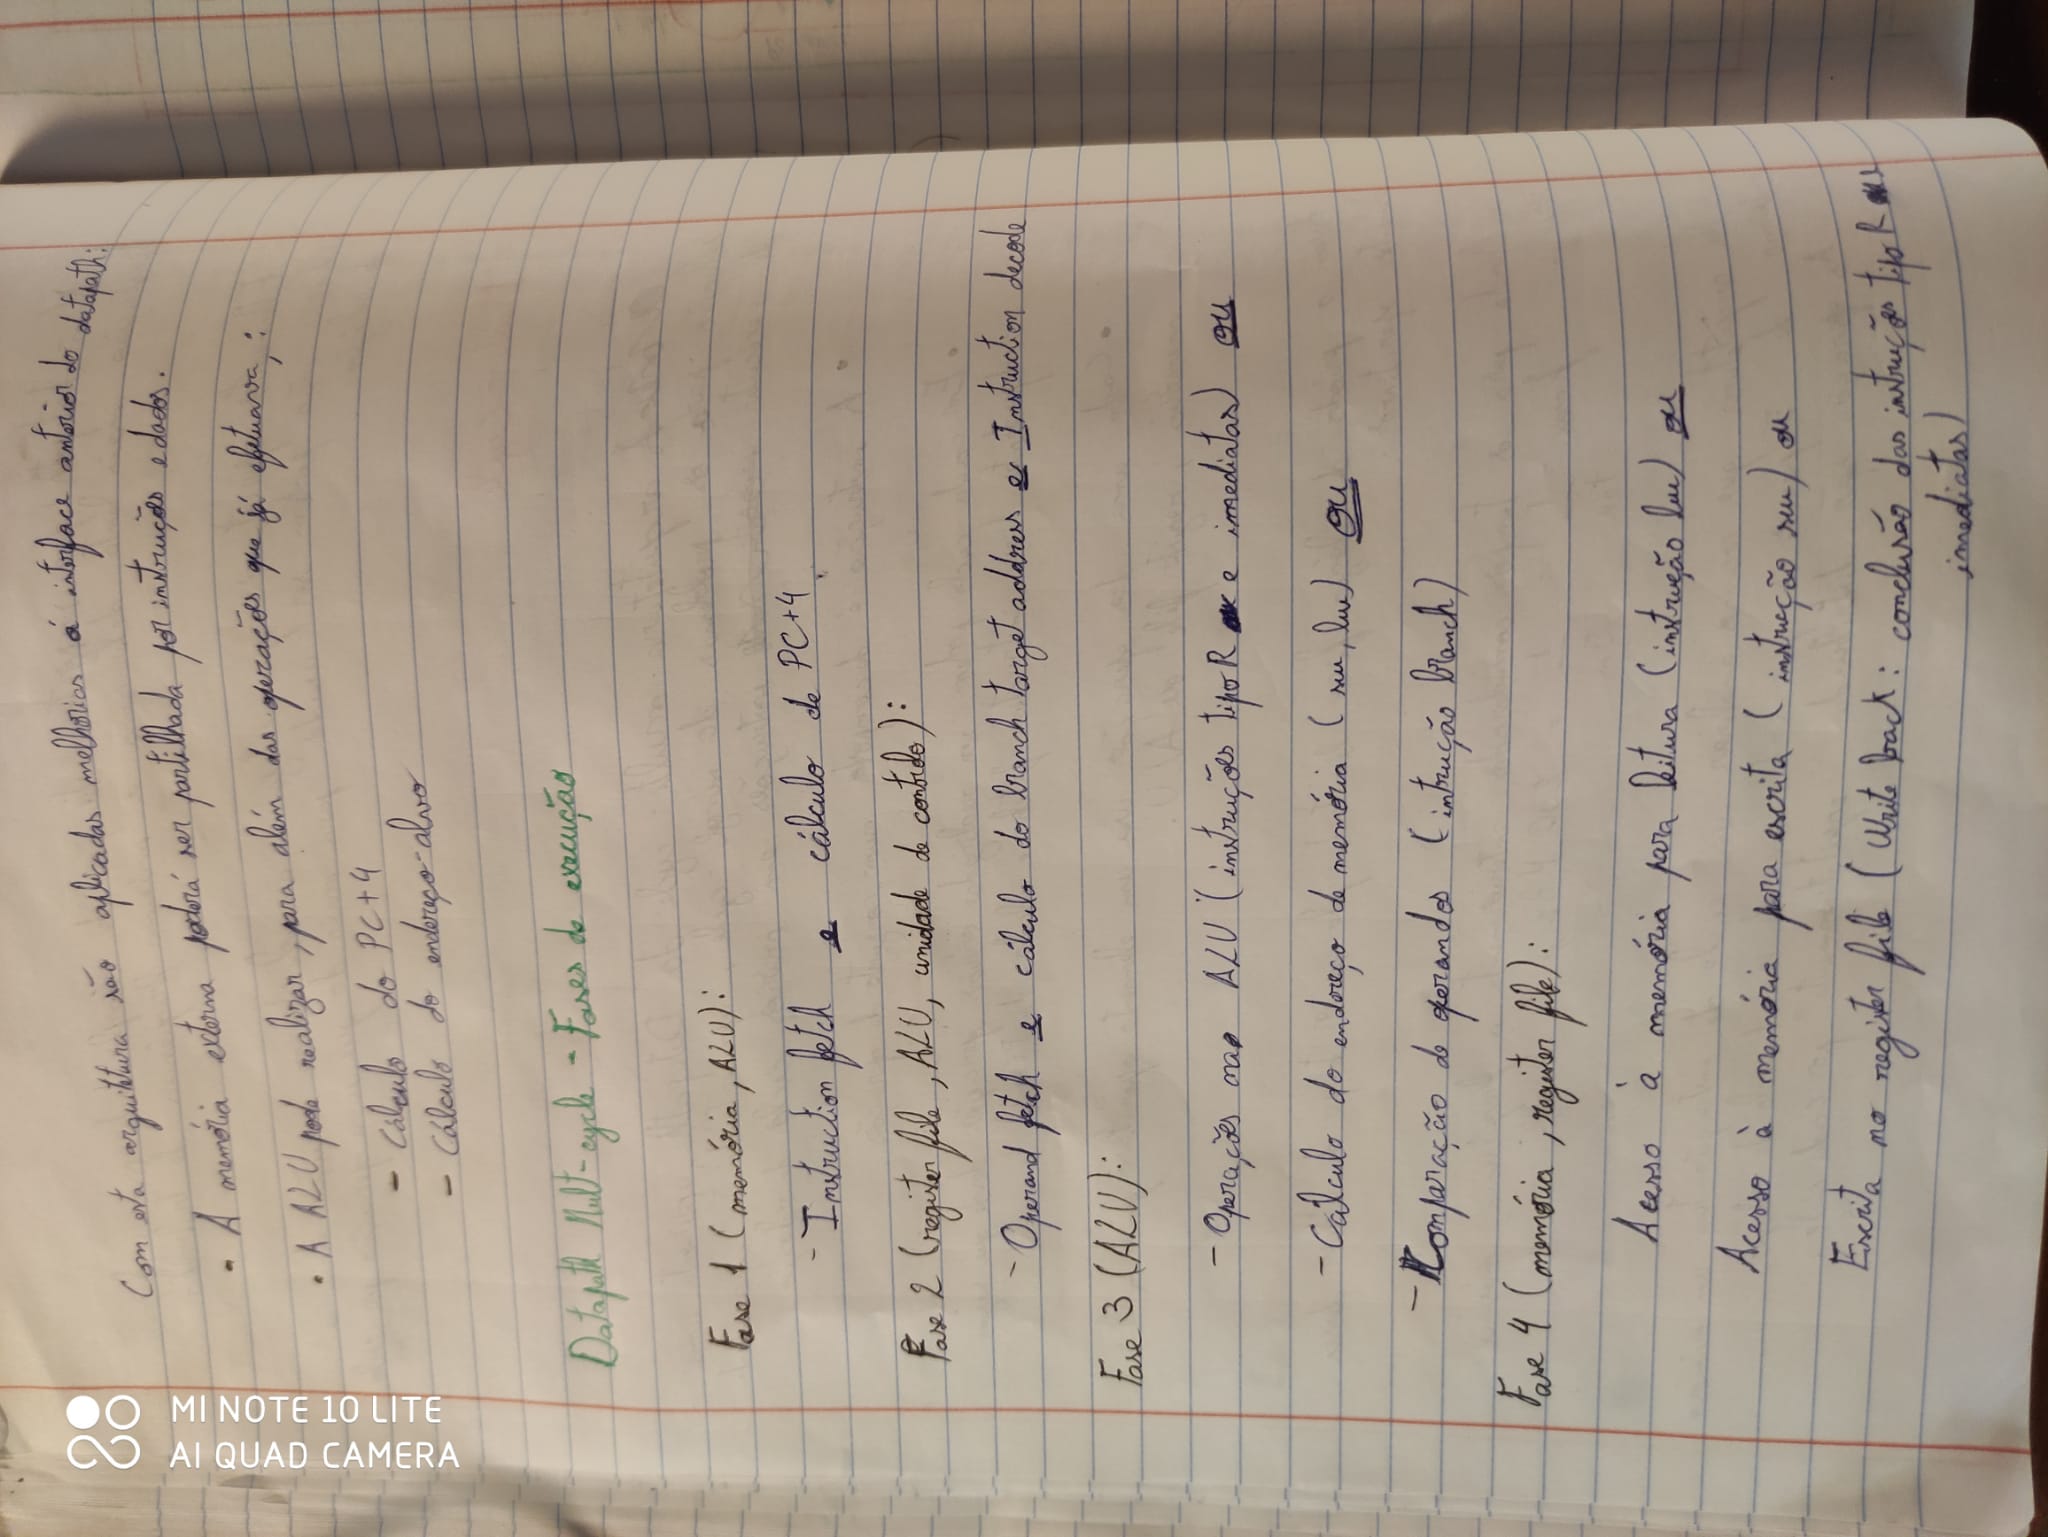 Com esta arquitetura são aplicadas melhorias á interface anterior do datapath:
• A memória externa poderá ser partilhada por instruções e dados.
• A ALU pode realizar, para além das operações que já efetuava,:
- Cálculo do PC+4
- Cálculo do endereço-alvo
Datapath Mult-cycle - Fases de execução
Fase 1 (memória, ALU):
- Instruction fetch e cálculo de PC+4.
Fase 2 (register file, ALU, unidade de controlo):
- Operand fetch e cálculo do branch target address e Instruction decode
Fase 3 (ALU):
- Operações na ALU (instruções tipo R e imediatas) ou
- Cálculo do endereço de memória (sw, lw) ou
- Comparação de operandos (intrução branch)
Fase 4 (memória, register file):
Acesso à memória para leitura (instrução lw) ou
Acesso à memória para escrita (instrução sw) ou
Escrita no register file (Write back: conclusão das instruções tipo R
imediatas)
MI NOTE 10 LITE
AI QUAD CAMERA